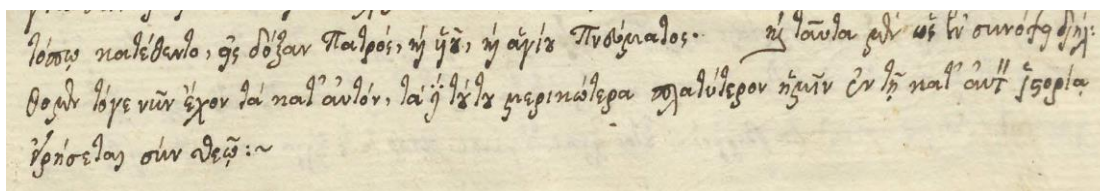 τόπῳ κατέθεντο, εἰς δόξαν Πατρός, καὶ ὑιοῦ, καὶ ἁγίου Πνεύματος. καὶ ταῦτα μὲν ὡς ἐν συνόψει διήλ:
θομεν τόγε νῦν ἔχον τὰ κατ' αὐτόν, τὰ δὲ τούτου μερικώτερα πλατύτερον ἡμῖν ἐν τῇ κατ' αὐτὸν ἱστορίᾳ
εἰρήσεται σύν θεῷ:~